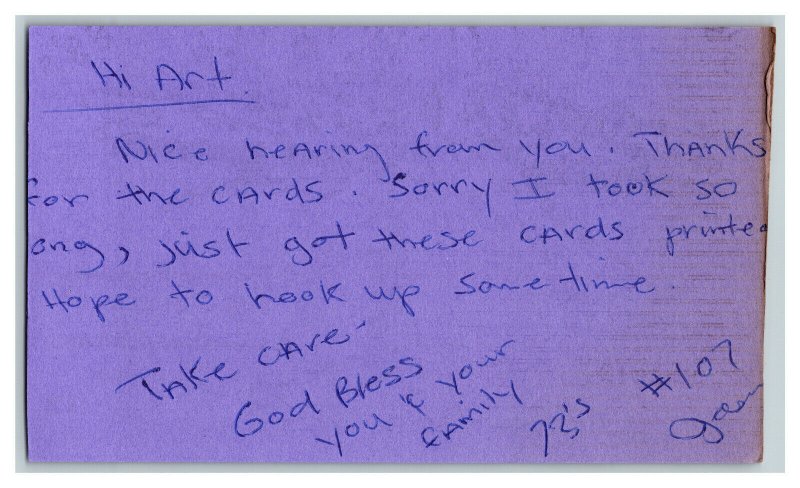 Hi Art.
Nice hearing from you. Thanks
for the cards. Sorry I took so
ong, just got these cards printed
Hope to hook up sometime.
Take care-
God Bless
you & your
family
73's
#107